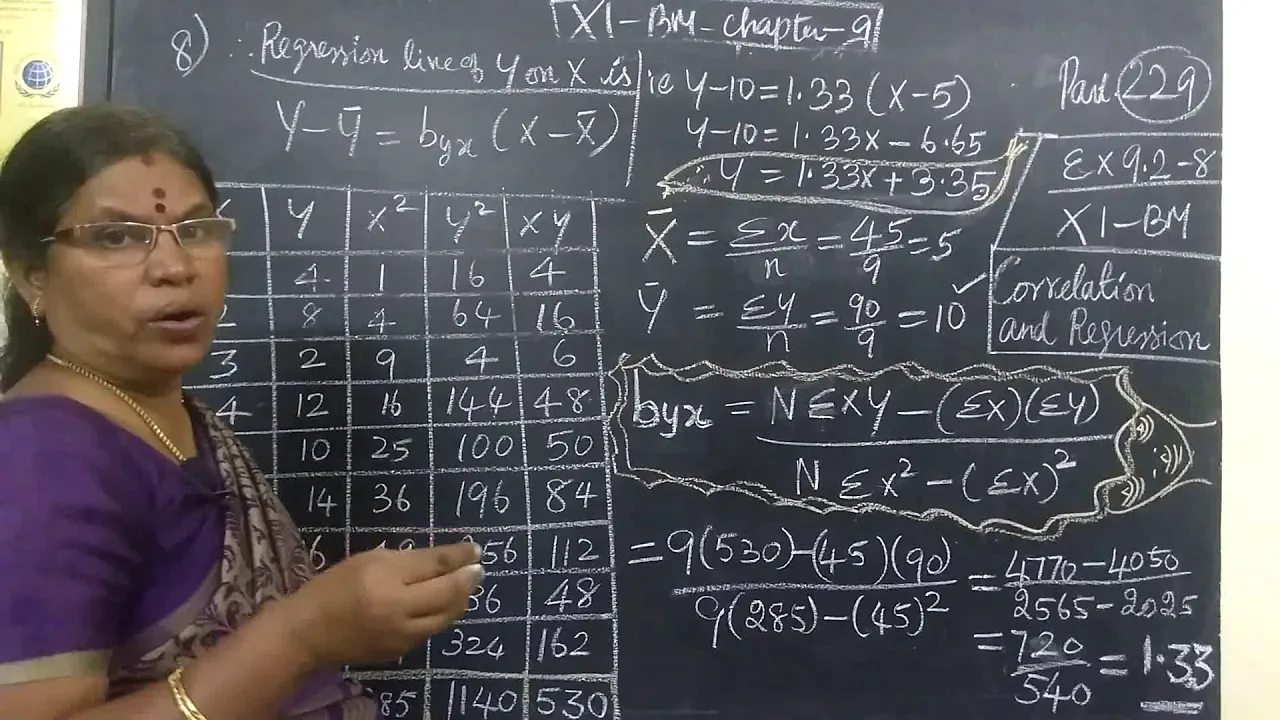 XI-BM-Chapter-9
8) ∴ Regression line of Y on X is
Y-Ȳ = byx (X-X̄)
ie Y-10 = 1.33 (X-5)
Y-10 = 1.33X - 6.65
∴ Y = 1.33X + 3.35
Part 229
EX 9.2-8
XI-BM
Correlation
and Regression
Y X² Y² XY
4 1 16 4
2 8 4 64 16
3 2 9 4 6
4 12 16 144 48
10 25 100 50
14 36 196 84
6 256 112
36 48
324 162
85 1140 530
X̄ = Σx/n = 45/9 = 5
Ȳ = Σy/n = 90/9 = 10 ✓
byx = NΣXY - (ΣX)(ΣY) / NΣX² - (ΣX)²
= 9(530) - (45)(90) / 9(285) - (45)² = 4770 - 4050 / 2565 - 2025
= 720/540 = 1.33